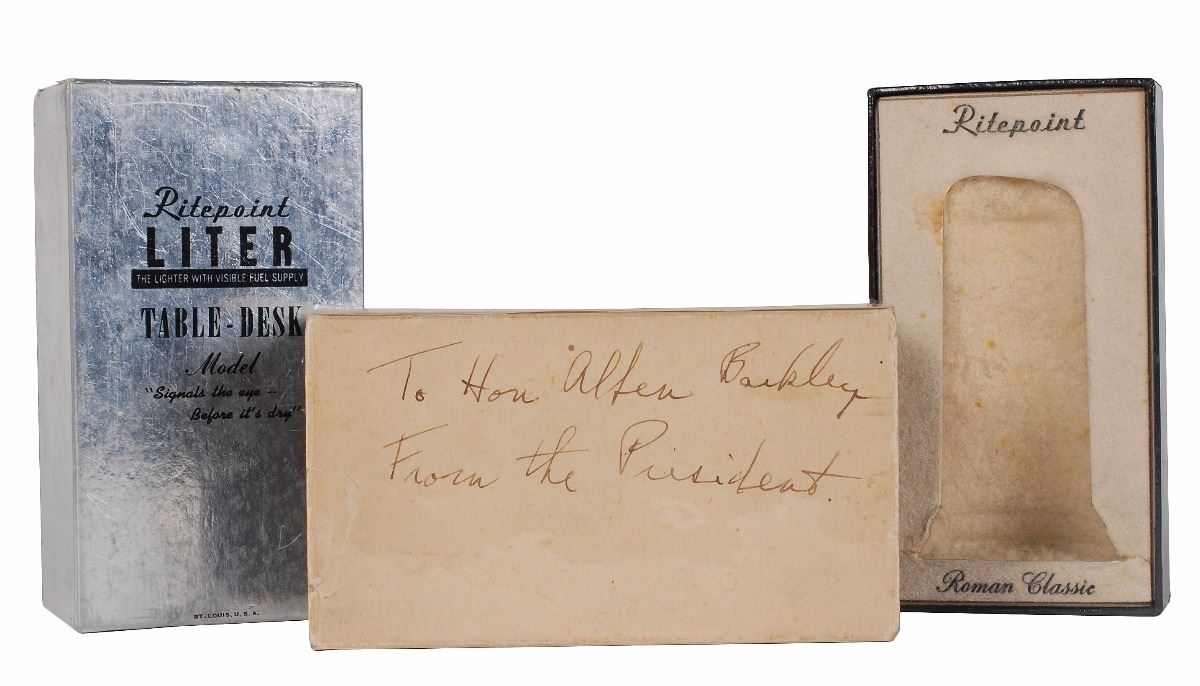 Ritepoint
LITER
THE LIGHTER WITH VISIBLE FUEL SUPPLY
TABLE-DESK
Model
"Signals the eye —
Before it's dry"
ST. LOUIS, U.S.A.
To Hon Alben Barkley
From the President.
Ritepoint
Roman Classic